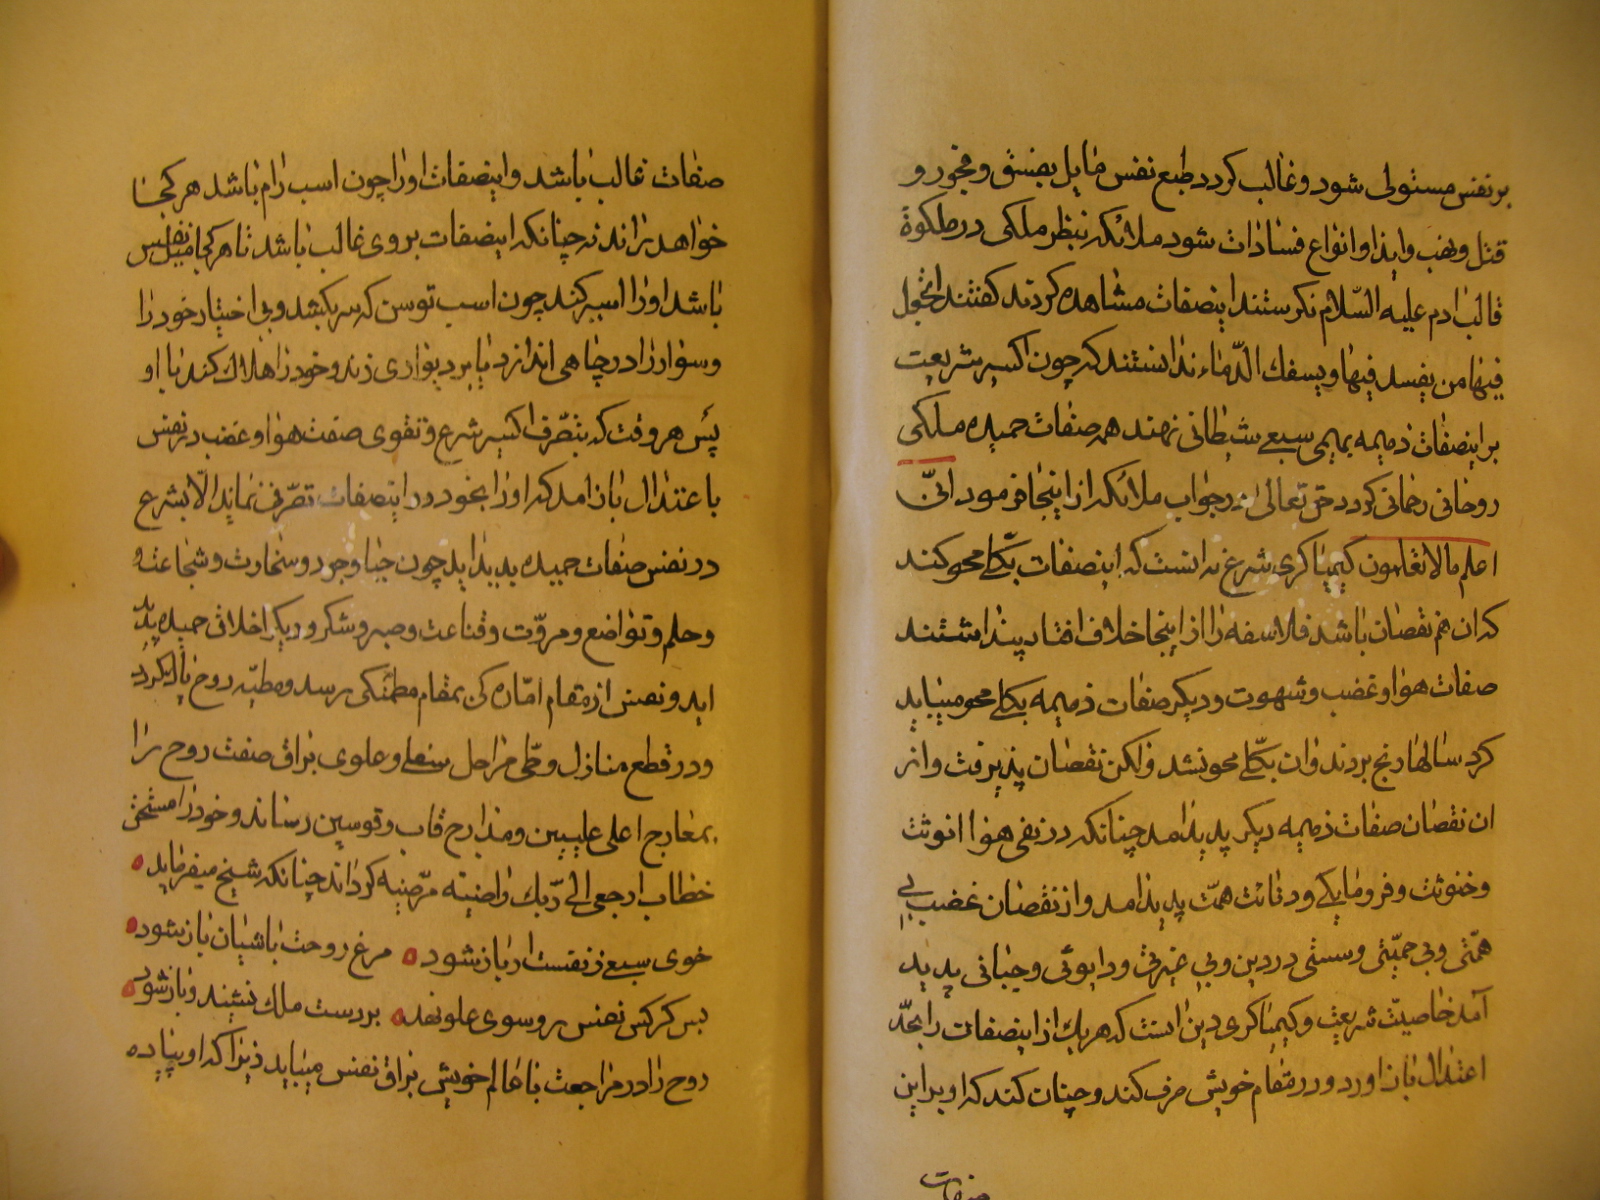 بر نفس مستولی شود و غالب کردد طبع نفس مایل بفسق و فجور و
قتل و نهب و ایذا و انواع فسادات شود ملائکه بنظر ملکی در ملکوة
قالب ادم علیه السّلام نکرستند اینصفات مشاهده کردند کفتند اتجعل
فیها من یفسد فیها و یسفک الدّماء ندانستند که چون اکسیر شریعت
بر اینصفات ذمیمه بهیمی سبعی شیطانی نهند همه صفات حمیده ملکی
روحانی رحمانی کردد حق تعالی در جواب ملائکه از اینجا فرمود انّی
اعلم ما لا تعلمون کیمیا کری شرع نه انست که اینصفات بکلّی محو کند
که ان هم نقصان باشد فلاسفه را از اینجا خلاف افتاد پنداشتند
صفات هوا و غضب و شهوت و دیکر صفات ذمیمه بکلی محو میباید
کرد سالها رنج بردند وان بکلّی محو نشد ولکن نقصان پذیرفت و از
ان نقصان صفات ذمیمه دیکر پدید امد چنانکه در نفی هوا انوثت
و خنوثت و فرومایکی و دنائت همّت پدید امد و از نقصان غضب بی
همّتی و بی حمیّتی و سستی در دین و بی غیرتی و دیوثی و جبانی پدید
آمد خاصیّت شریعت و کیمیا کری دین انست که هر یک از اینصفات را بحدّ
اعتدال باز اورد و در مقام خویش صرف کند و چنان کند که او بر این
صفات
صفات غالب باشد و اینصفات او را چون اسب رام باشد هر کجا
خواهد براند نه چنانکه اینصفات بر وی غالب باشد تا هر کجا میل نفس
باشد او را اسیر کند چون اسب توسن که سر بکشد و بی اختیار خود را
و سوار را در چاهی اندازد یا بر دیواری زند و خود را هلاک کند با او
پس هر وقت که بتصّرف اکسیر شرع و تقوی صفت هوا و غضب در نفس
باعتدال باز امد که او را بخود در اینصفات تصّرفی نماند الّا بشرع
در نفس صفات حمیده پدید اید چون حیا و جود و سخاوت و شجاعت و
و حلم و تواضع و مروّت و قناعت و صبر و شکر و دیکر اخلاق حمیده پد
اید و نفس از مقام امّاره کی بمقام مطمئنکی رسد و مطیّه روح پاک کردد
و در قطع منازل و طّی مراحل سفلی و علوی براق صفت روح را
بمعارج اعلی علیین و مدارج قاب و قوسین رساند و خود را مستحق
خطاب ارجعی الی ربّک راضیّه مرّضیّه کرداند چنانکه شیخ میفرماید
خوی سبعی ز نفست ار باز شود مرغ روحت باشیان باز شود
پس کرکس نفس رو سوی علو نهد بر دست ملک نشیند و باز شود
روح را در مراجعت با عالم خویش براق نفس میباید زیرا که او پیاده